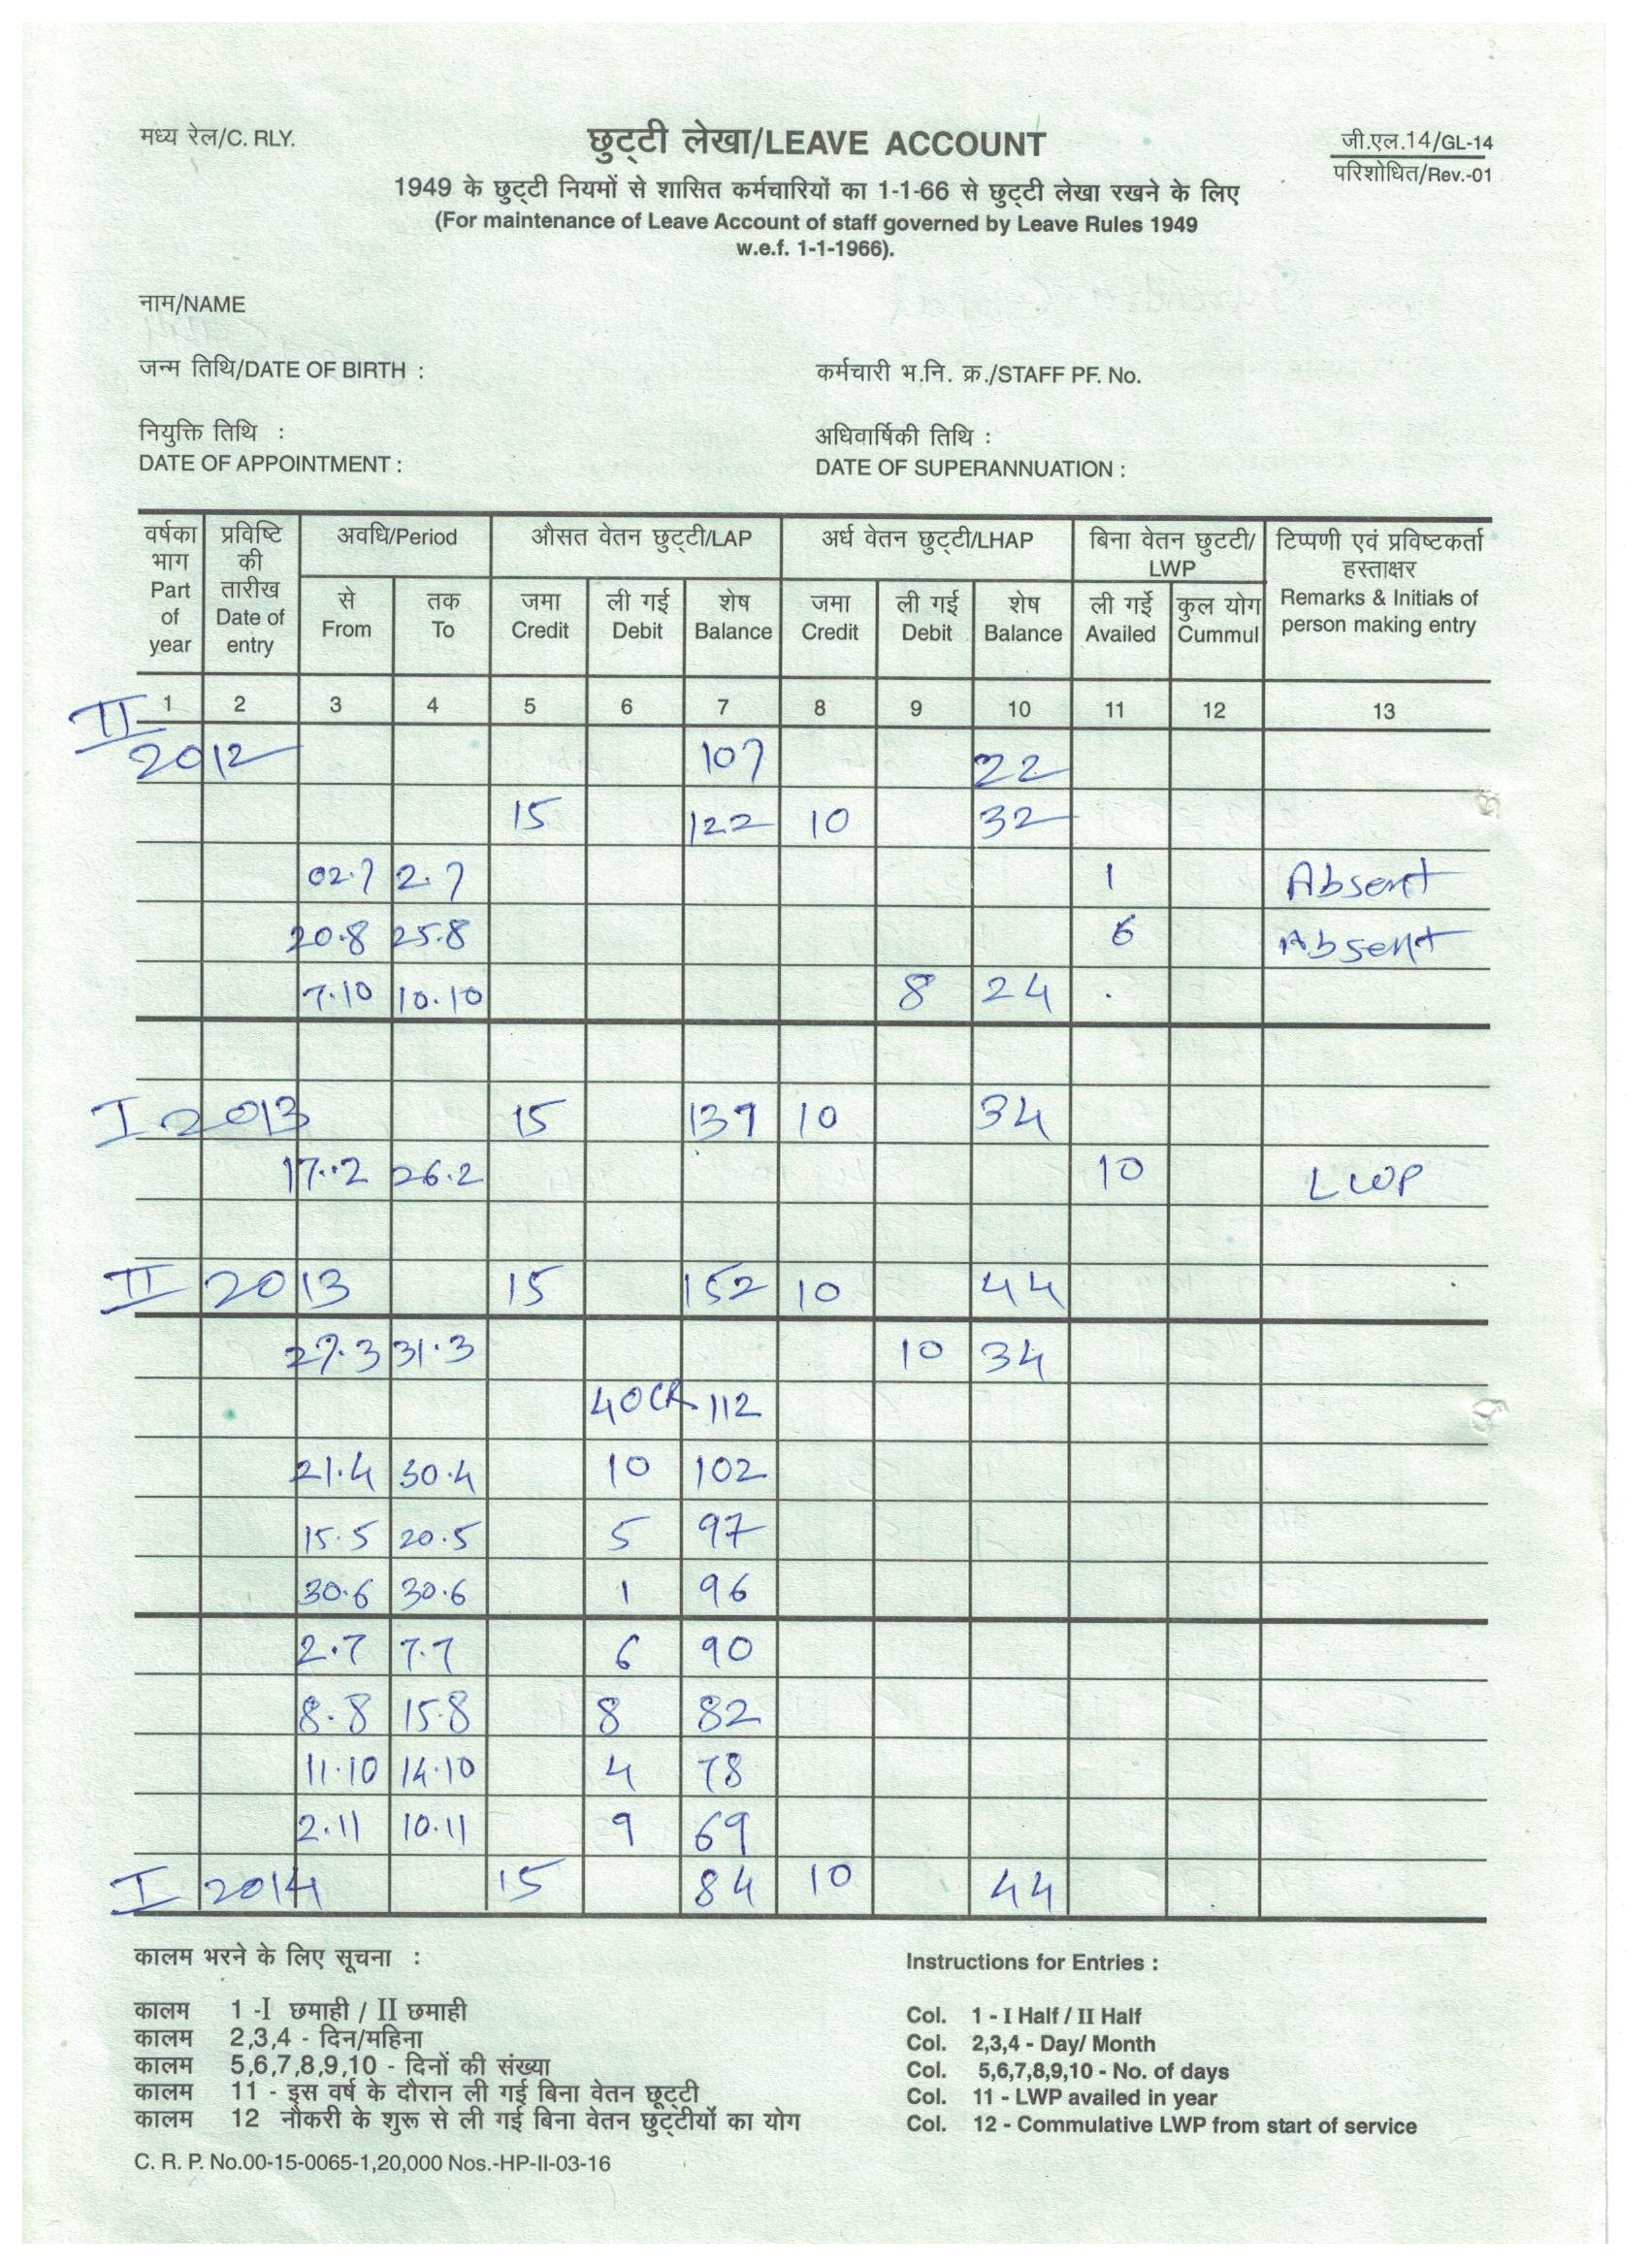 मध्य रेल/C. RLY.
छुट्टी लेखा/LEAVE ACCOUNT
जी.एल.14/GL-14
परिशोधित/Rev.-01
1949 के छुट्टी नियमों से शासित कर्मचारियों का 1-1-66 से छुट्टी लेखा रखने के लिए
(For maintenance of Leave Account of staff governed by Leave Rules 1949
w.e.f. 1-1-1966).
नाम/NAME
जन्म तिथि/DATE OF BIRTH :
कर्मचारी भ.नि. क्र./STAFF PF. No.
नियुक्ति तिथि :
अधिवार्षिकी तिथि :
DATE OF APPOINTMENT :
DATE OF SUPERANNUATION :
वर्षका भाग Part of year
प्रविष्टि की तारीख Date of entry
अवधि/Period
औसत वेतन छुट्टी/LAP
अर्ध वेतन छुट्टी/LHAP
बिना वेतन छुटटी/ LWP
टिप्पणी एवं प्रविष्टकर्ता हस्ताक्षर Remarks & Initials of person making entry
से From
तक To
जमा Credit
ली गई Debit
शेष Balance
जमा Credit
ली गई Debit
शेष Balance
ली गई Availed
कुल योग Cummul
1 2 3 4 5 6 7 8 9 10 11 12 13
II 2012 107 22
15 122 10 32
02.7 2.7 1 Absent
20.8 25.8 6 Absent
7.10 10.10 8 24
I 2013 15 137 10 34
17.2 26.2 10 LWP
II 2013 15 152 10 44
27.3 31.3 10 34
40CR 112
21.4 30.4 10 102
15.5 20.5 5 97
30.6 30.6 1 96
2.7 7.7 6 90
8.8 15.8 8 82
11.10 14.10 4 78
2.11 10.11 9 69
I 2014 15 84 10 44
कालम भरने के लिए सूचना :
कालम 1 -I छमाही / II छमाही
कालम 2,3,4 - दिन/महिना
कालम 5,6,7,8,9,10 - दिनों की संख्या
कालम 11 - इस वर्ष के दौरान ली गई बिना वेतन छूट्टी
कालम 12 नौकरी के शुरू से ली गई बिना वेतन छुट्टीयों का योग
Instructions for Entries :
Col. 1 - I Half / II Half
Col. 2,3,4 - Day/ Month
Col. 5,6,7,8,9,10 - No. of days
Col. 11 - LWP availed in year
Col. 12 - Commulative LWP from start of service
C. R. P. No.00-15-0065-1,20,000 Nos.-HP-II-03-16